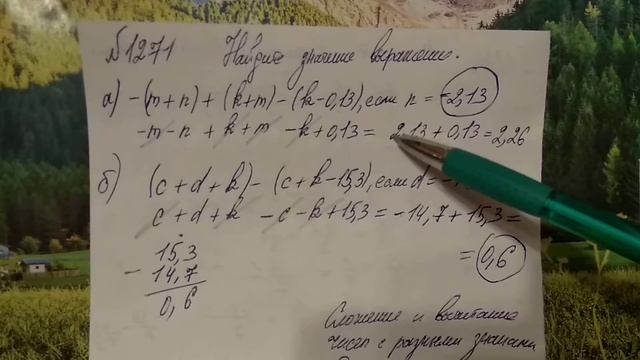 №1271 Найдите значение выражения.
а) -(m+n)+(k+m)-(k-0,13), если n = -2,13
-m-n+k+m-k+0,13= 2,13+0,13=2,26
б) (c+d+k)-(c+k-15,3), если d=
c+d+k-c-k+15,3=-14,7+15,3=
=0,6
15,3
- 14,7
0,6
Сложение и вычитание
чисел с разными знаками